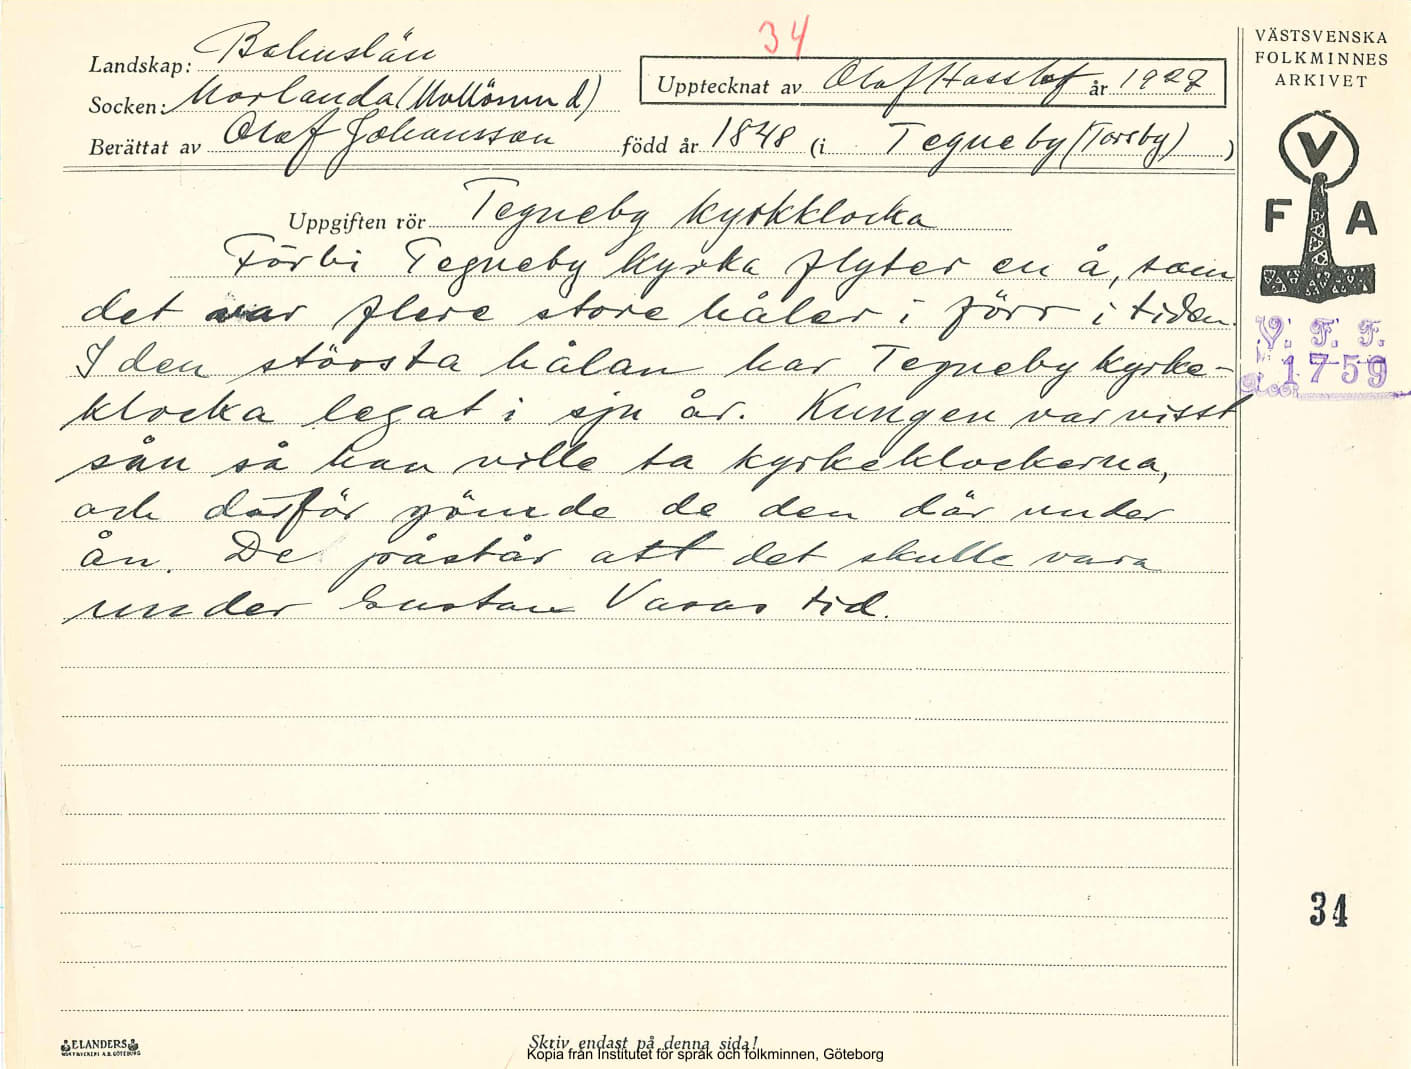 34
Landskap: Bohuslän
Socken: Morlanda (Mollösund)
Upptecknat av Olof Hasslöf år 1927
Berättat av Olof Johansson född år 1848 (i Tegneby (Torsby) )
VÄSTSVENSKA
FOLKMINNES
ARKIVET
V
F A
V. F. F.
1759
Uppgiften rör Tegneby kyrkklocka
Förbi Tegneby kyrka flyter en å, som
det var flere store håler i förr i tiden.
I den största hålan har Tegneby kyrke-
klocka legat i sju år. Kungen var visst
sån så han ville ta kyrkeklockerna,
och därför gömde de den där under
ån. De påstår att det skulle vara
under Gustav Vasas tid.
34
ELANDERS
Skriv endast på denna sida!
Kopia från Institutet för språk och folkminnen, Göteborg